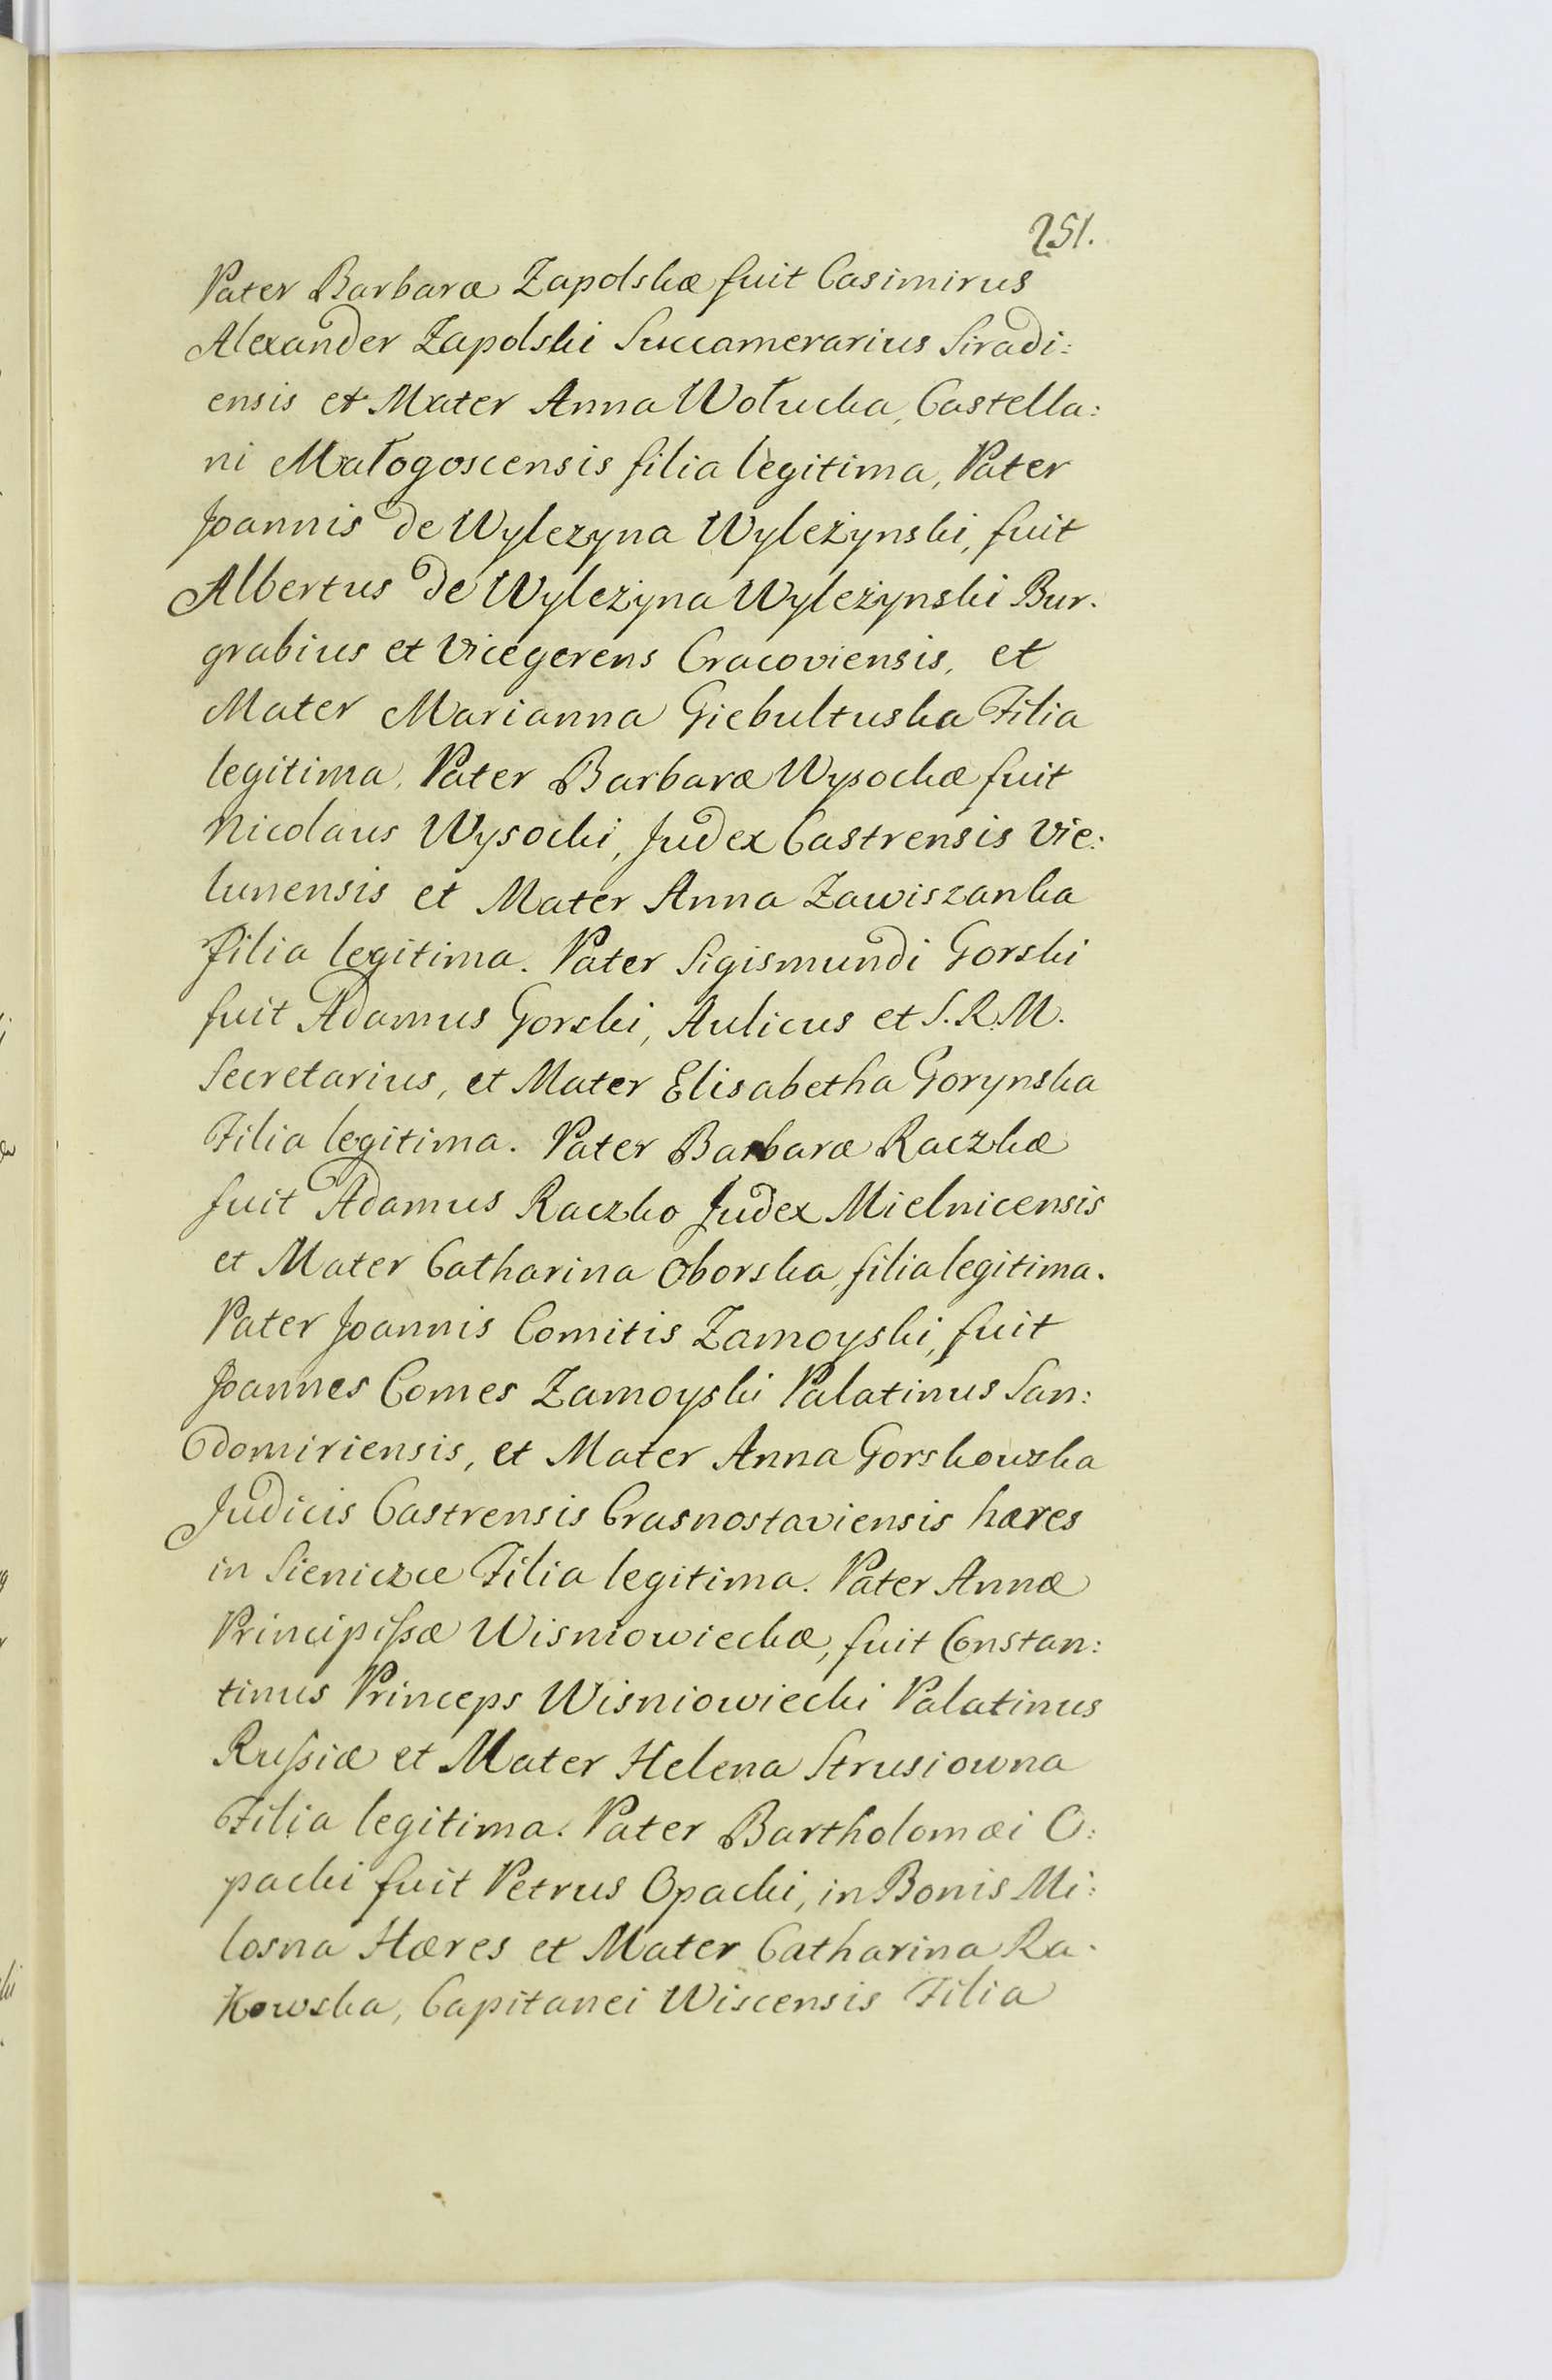 251.
Pater Barbaræ Zapolskæ fuit Casimirus
Alexander Zapolski Succamerarius Siradi:
ensis et Mater Anna Wołucka, Castella:
ni Małogoscensis filia legitima, Pater
Joannis de Wylezyna Wyleżynski, fuit
Albertus de Wyleżyna Wyleżynski Bur.
grabius et Vicegerens Cracoviensis, et
Mater Marianna Giebultuska Filia
legitima, Pater Barbaræ Wysockæ fuit
Nicolaus Wysocki, Judex Castrensis Vie:
lunensis et Mater Anna Zawiszanka
Filia legitima. Pater Sigismundi Gorski
fuit Adamus Gorski, Aulicus et S.R.M.
Secretarius, et Mater Elisabetha Gorynska
Filia legitima. Pater Barbaræ Raczkæ
fuit Adamus Raczko Judex Mielnicensis
et Mater Catharina Oborska, filia legitima.
Pater Joannis Comitis Zamoyski, fuit
Joannes Comes Zamoyski Palatinus San:
domiriensis, et Mater Anna Gorskowska
Judicis Castrensis Crasnostaviensis hæres
in Sieniczce Filia legitima. Pater Annæ
Principissæ Wisniowieckæ, fuit Constan:
tinus Princeps Wisniowiecki Palatinus
Russiæ et Mater Helena Strusiowna
Filia legitima. Pater Bartholomæi O:
packi fuit Petrus Opacki, in Bonis Mi:
losna Hæres et Mater Catharina Ra.
Kowska, Capitanei Wiscensis Filia